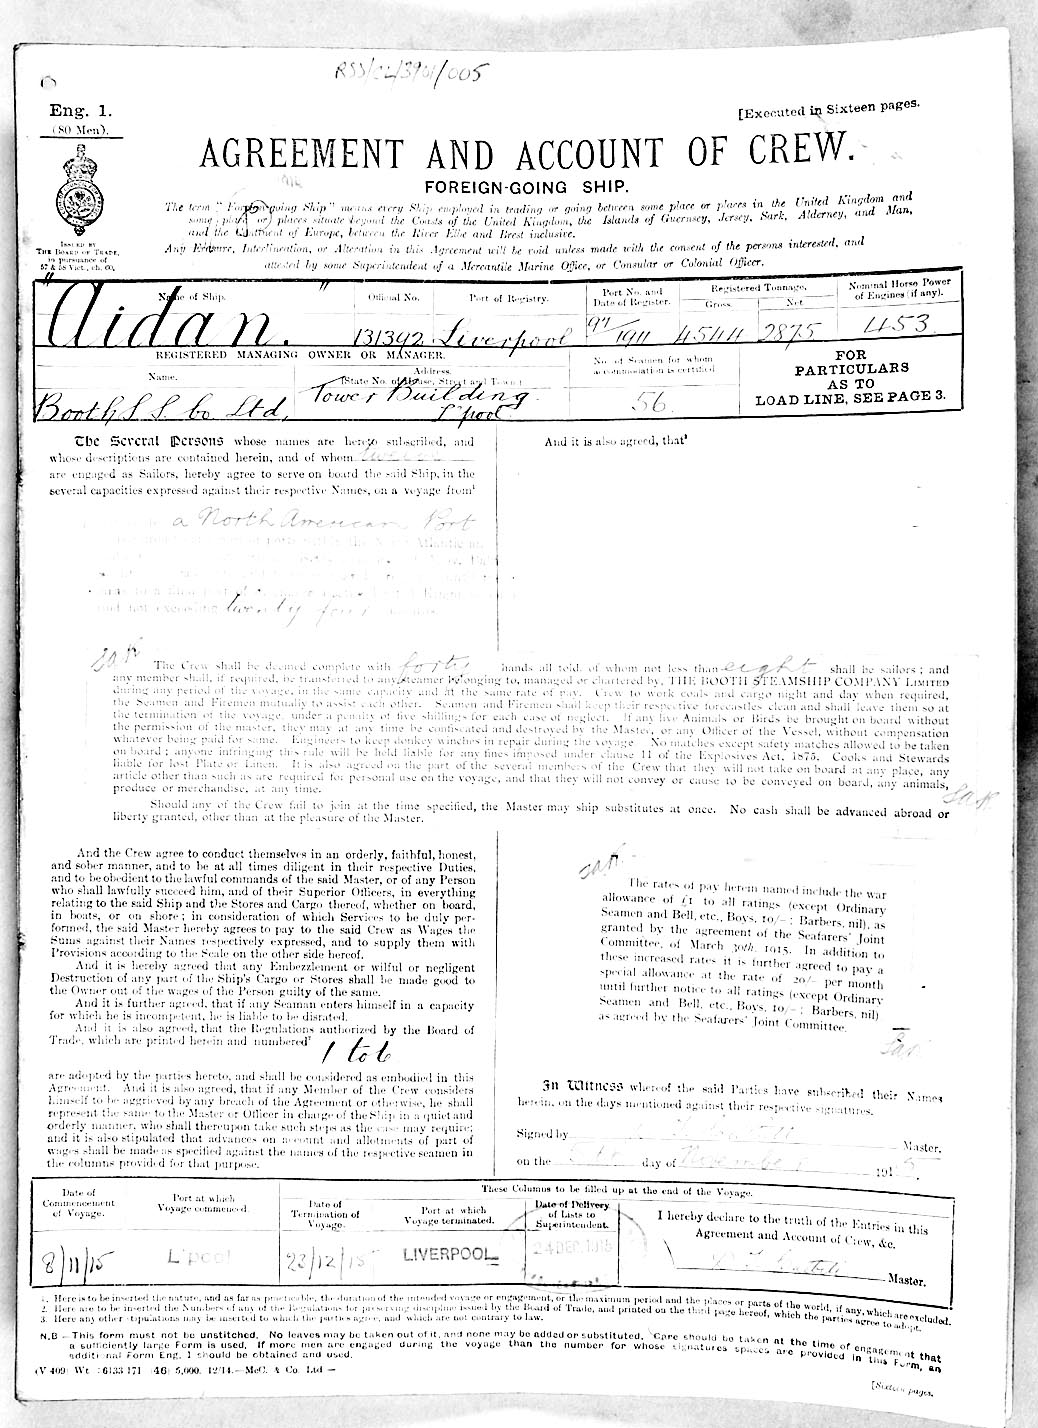 RSS/CL/3901/005
Eng. 1.
(80 Men).
[Executed in Sixteen pages.
AGREEMENT AND ACCOUNT OF CREW.
FOREIGN-GOING SHIP.
The term "Foreign-going Ship" means every Ship employed in trading or going between some place or places in the United Kingdom and
some place or places situate beyond the Coasts of the United Kingdom, the Islands of Guernsey, Jersey, Sark, Alderney, and Man,
and the Continent of Europe, between the River Elbe and Brest inclusive.
Any Erasure, Interlineation, or Alteration in this Agreement will be void unless made with the consent of the persons interested, and
attested by some Superintendent of a Mercantile Marine Office, or Consular or Colonial Officer.
ISSUED BY
THE BOARD OF TRADE,
in pursuance of
57 & 58 Vict., ch. 60,
Name of Ship.
Official No.
Port of Registry.
Port No. and
Date of Register.
Registered Tonnage.
Gross.
Net.
Nominal Horse Power
of Engines (if any).
"Aidan."
131392
Liverpool
97/1911
4544
2875
453
REGISTERED MANAGING OWNER OR MANAGER.
Name.
Address.
(State No. of House, Street and Town)
No. of Seamen for whom
accommodation is certified
FOR
PARTICULARS
AS TO
LOAD LINE, SEE PAGE 3.
Booth S. S. Co. Ltd,
Tower Building
L'pool
56
The Several Persons whose names are hereto subscribed, and
whose descriptions are contained herein, and of whom twelve
are engaged as Sailors, hereby agree to serve on board the said Ship, in the
several capacities expressed against their respective Names, on a voyage from¹
a North American Port
twenty four
And it is also agreed, that³
The Crew shall be deemed complete with forty hands all told, of whom not less than eight shall be sailors; and
any member shall, if required, be transferred to any steamer belonging to, managed or chartered by, THE BOOTH STEAMSHIP COMPANY LIMITED
during any period of the voyage, in the same capacity and at the same rate of pay. Crew to work coals and cargo night and day when required,
the Seamen and Firemen mutually to assist each other. Seamen and Firemen shall keep their respective forecastles clean and shall leave them so at
the termination of the voyage, under a penalty of five shillings for each case of neglect. If any live Animals or Birds be brought on board without
the permission of the master, they may at any time be confiscated and destroyed by the Master, or any Officer of the Vessel, without compensation
whatever being paid for same. Engineers to keep donkey winches in repair during the voyage. No matches except safety matches allowed to be taken
on board; anyone infringing this rule will be held liable for any fines imposed under clause 11 of the Explosives Act, 1875. Cooks and Stewards
liable for lost Plate or Linen. It is also agreed on the part of the several members of the Crew that they will not take on board at any place, any
article other than such as are required for personal use on the voyage, and that they will not convey or cause to be conveyed on board, any animals,
produce or merchandise, at any time.
Should any of the Crew fail to join at the time specified, the Master may ship substitutes at once. No cash shall be advanced abroad or
liberty granted, other than at the pleasure of the Master.
And the Crew agree to conduct themselves in an orderly, faithful, honest,
and sober manner, and to be at all times diligent in their respective Duties,
and to be obedient to the lawful commands of the said Master, or of any Person
who shall lawfully succeed him, and of their Superior Officers, in everything
relating to the said Ship and the Stores and Cargo thereof, whether on board,
in boats, or on shore; in consideration of which Services to be duly per-
formed, the said Master hereby agrees to pay to the said Crew as Wages the
Sums against their Names respectively expressed, and to supply them with
Provisions according to the Scale on the other side hereof.
And it is hereby agreed that any Embezzlement or wilful or negligent
Destruction of any part of the Ship's Cargo or Stores shall be made good to
the Owner out of the wages of the Person guilty of the same.
And it is further agreed, that if any Seaman enters himself in a capacity
for which he is incompetent, he is liable to be disrated.
And it is also agreed, that the Regulations authorized by the Board of
Trade, which are printed herein and numbered²
1 to 6
are adopted by the parties hereto, and shall be considered as embodied in this
Agreement. And it is also agreed, that if any Member of the Crew considers
himself to be aggrieved by any breach of the Agreement or otherwise, he shall
represent the same to the Master or Officer in charge of the Ship in a quiet and
orderly manner, who shall thereupon take such steps as the case may require;
and it is also stipulated that advances on account and allotments of part of
wages shall be made as specified against the names of the respective seamen in
the columns provided for that purpose.
The rates of pay herein named include the war
allowance of £1 to all ratings (except Ordinary
Seamen and Bell, etc., Boys, 10/-; Barbers, nil), as
granted by the agreement of the Seafarers' Joint
Committee, of March 30th, 1915. In addition to
these increased rates it is further agreed to pay a
special allowance at the rate of 20/- per month
until further notice to all ratings (except Ordinary
Seamen and Bell, etc., Boys, 10/-; Barbers, nil)
as agreed by the Seafarers' Joint Committee.
In Witness whereof the said Parties have subscribed their Names
herein, on the days mentioned against their respective signatures.
Signed by
Master,
on the
day of November 1915.
Date of
Commencement
of Voyage.
Port at which
Voyage commenced.
These Columns to be filled up at the end of the Voyage.
Date of
Termination of
Voyage.
Port at which
Voyage terminated.
Date of Delivery
of Lists to
Superintendent.
I hereby declare to the truth of the Entries in this
Agreement and Account of Crew, &c.
8/11/15
L'pool
23/12/15
LIVERPOOL
24 DEC. 1915
Master.
1. Here is to be inserted the nature, and as far as practicable, the duration of the intended voyage or engagement, or the maximum period and the places or parts of the world, if any, which are excluded.
2. Here are to be inserted the Numbers of any of the Regulations for preserving discipline issued by the Board of Trade, and printed on the third page hereof, which the parties agree to adopt.
3. Here any other stipulations may be inserted to which the parties agree, and which are not contrary to law.
N.B—This form must not be unstitched. No leaves may be taken out of it, and none may be added or substituted. Care should be taken at the time of engagement that
a sufficiently large Form is used. If more men are engaged during the voyage than the number for whose signatures spaces are provided in this Form, an
additional Form Eng. 1 should be obtained and used.
(V 409) Wt. 6133/171 (46) 5,000. 12/14.—McC. & Co. Ltd—
[Sixteen pages.